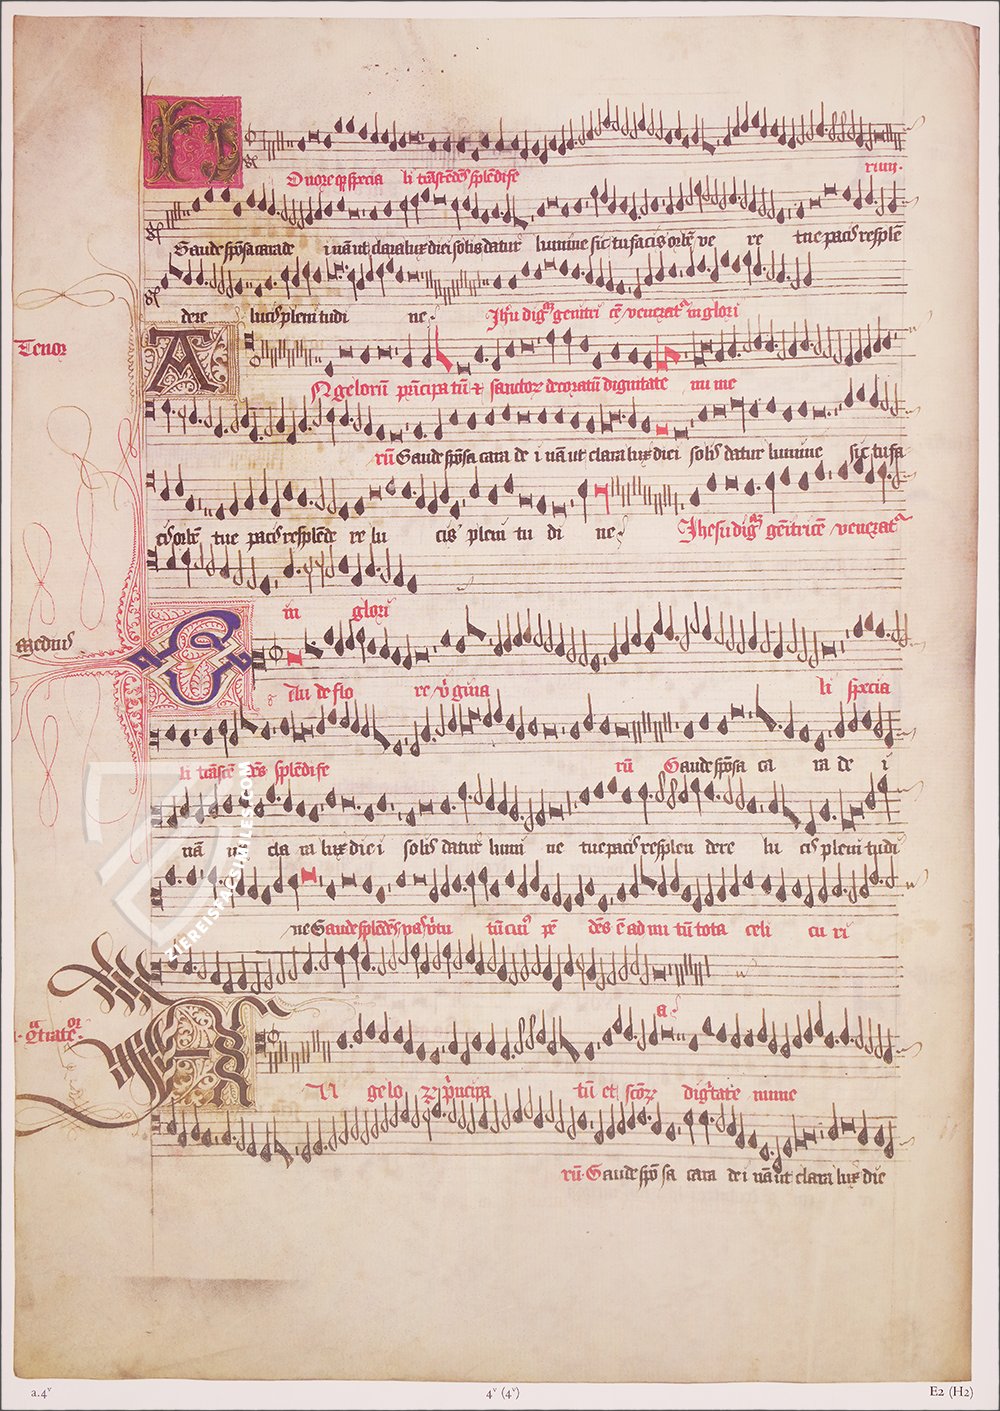 Onore qȝ specia li trāscēdēs splēdife riuȝ.
Gaude spōsa cara de i nā ut clara lux diei solis datur lumine sic tu facis orbē ve re tue pacis resplē
dere lucis pleni tudi ne. Jhesu digȝ genitri cē venerat in glori
Tenor
A Ngelorū prīncipa tū et sanctorȝ decoratū dignitate nu me
rū Gaude spōsa cara de i nā ut clara lux diei solis datur lumine sic tu fa
cis orbē tue pacis resplēde re lu cis pleni tu di ne. Jhesu digȝ genitricē venerat
in glori
Medius
E Au de flo re vgina li specia
li trāscē dēs splēdife rū Gaude spōsa ca ra de i
nā ut cla ra lux die i solis datur lumi ne tue pacis resplen dere lu cis pleni tudi
ne Gaude splēdēs vas vtu tū cuius pē dēs ē ad nu tū tota celi cu ri
a.
Contratenor
A N gelo rȝ prīncipa tū et scōrȝ dignitate nume
rū. Gaude spō sa cara de i nā ut clara lux die
ZIEREIS FACSIMILES.COM
a.4ᵛ 4ᵛ (4ᵛ) E2 (H2)